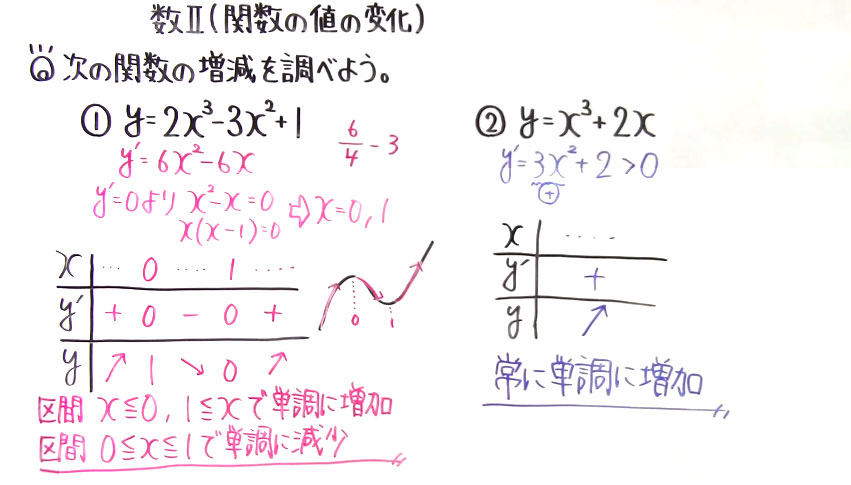 数Ⅱ(関数の値の変化)
問 次の関数の増減を調べよう。
① y=2x³-3x²+1
6/4 - 3
y'=6x²-6x
y'=0より x²-x=0 ⇨ x=0, 1
x(x-1)=0
x ... 0 .... 1 ....
y' + 0 - 0 +
y ↗ 1 ↘ 0 ↗
0 1
区間 x≦0, 1≦xで単調に増加
区間 0≦x≦1で単調に減少
② y=x³+2x
y'=3x²+2>0
⊕
x ....
y' +
y ↗
常に単調に増加